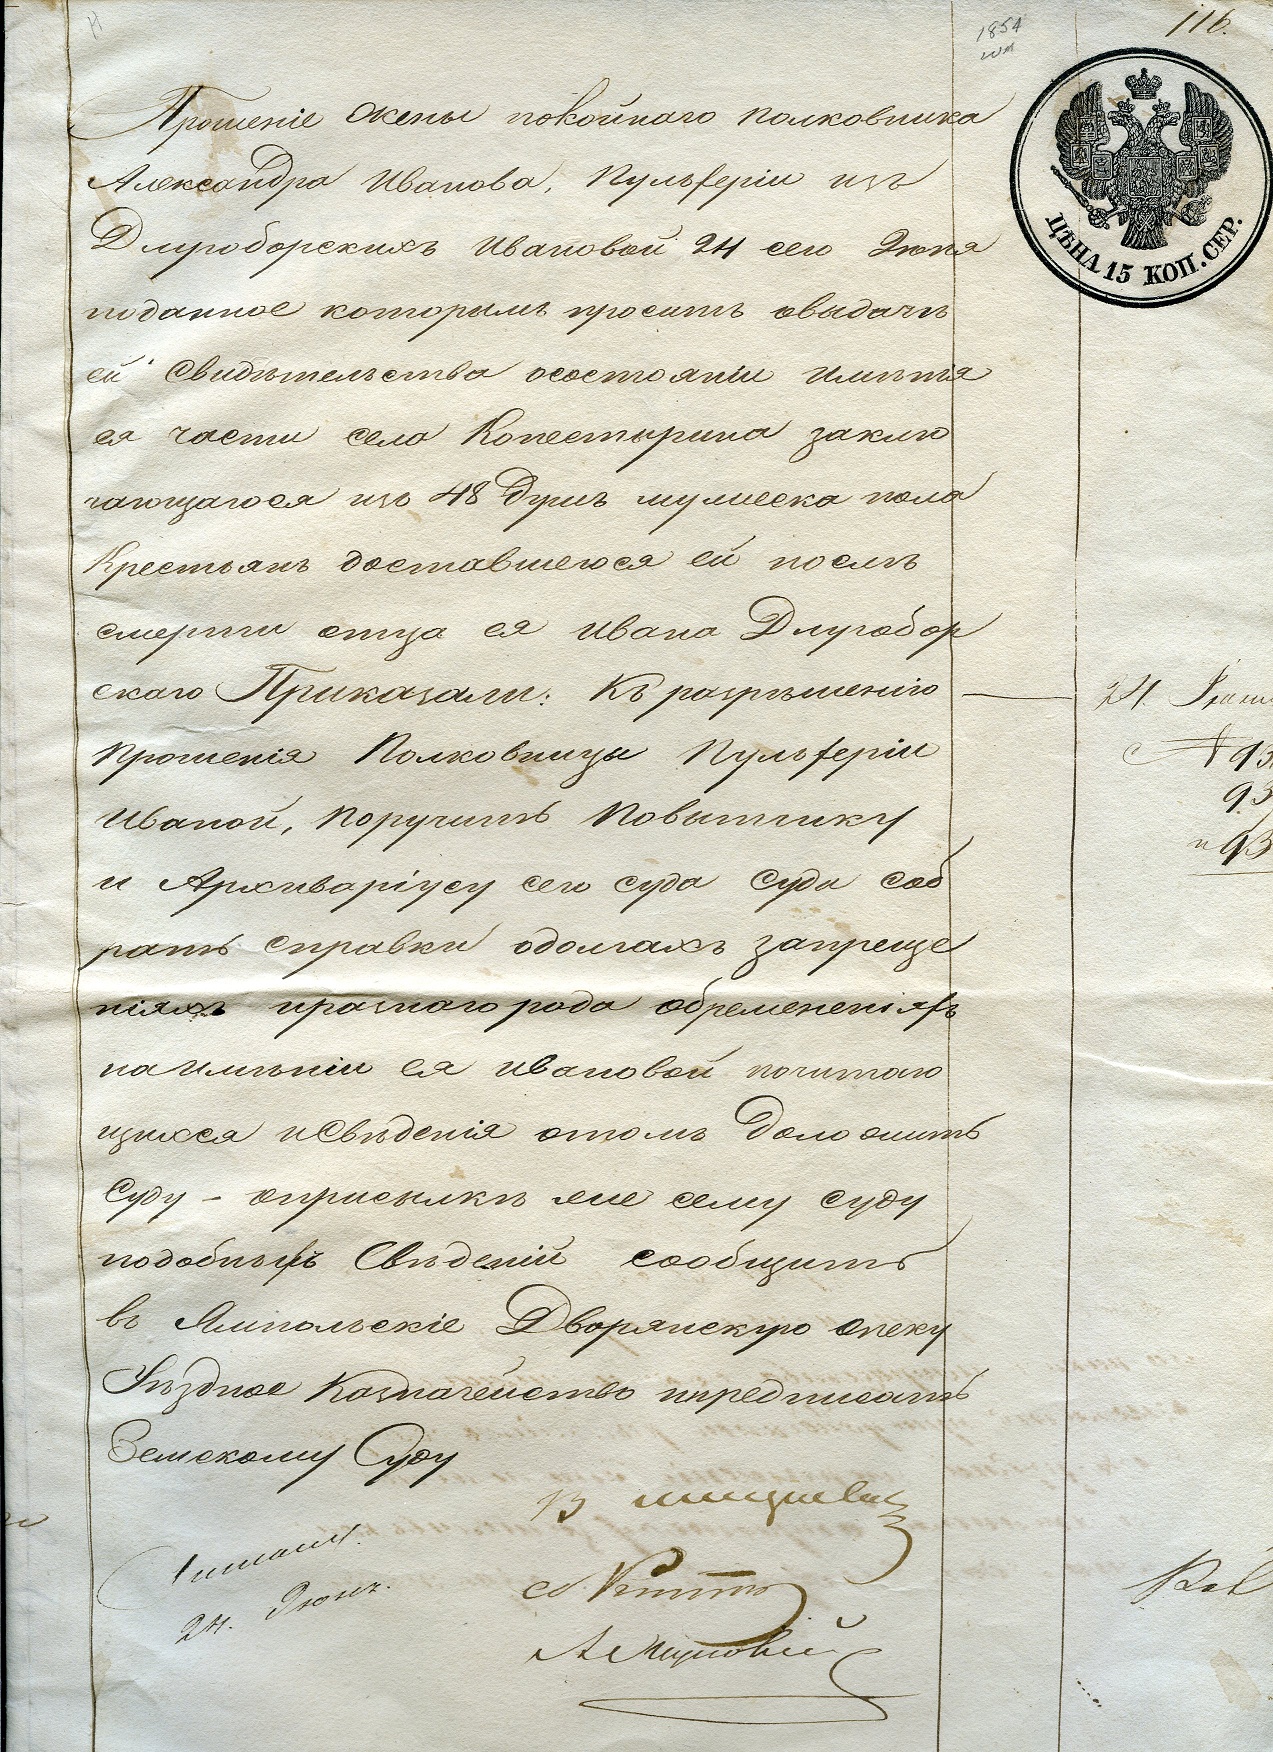 116.
1854
ЦѢНА 15 КОП. СЕР.
Прошеніе жены покойнаго полковника
Александра Иванова, Пульферіи изъ
Длугоборскихъ Ивановой 24 сего Іюня
поданное которымъ проситъ овыдачѣ
ей Свидѣтельства осостояніи имѣнія
ея части села Конестырина заклю
чающагося изъ 48 душъ мужеска пола
Крестьянъ доставшегося ей послѣ
смерти отца ея Ивана Длугобор
скаго Приказали: Къ разрѣшенію
прошенія Полковницы Пульферіи
Иваной, поручить Повытчику
и Архиваріусу сего суда Суда соб
рать справки одолгахъ запреще
ніяхъ иразнаго рода обремененіяхъ
наимѣніи ея Ивановой почитаю
щихся иСвѣденія отомъ доложить
Суду – оприсылкѣ же сему суду
подобныхъ Свѣденій сообщить
въ Ямпольскіе Дворянскую опеку
Уѣздное Казначейство ипредписать
Земскому Суду
24.
№ 93
93
и 93
Читалъ.
24. Іюнь.